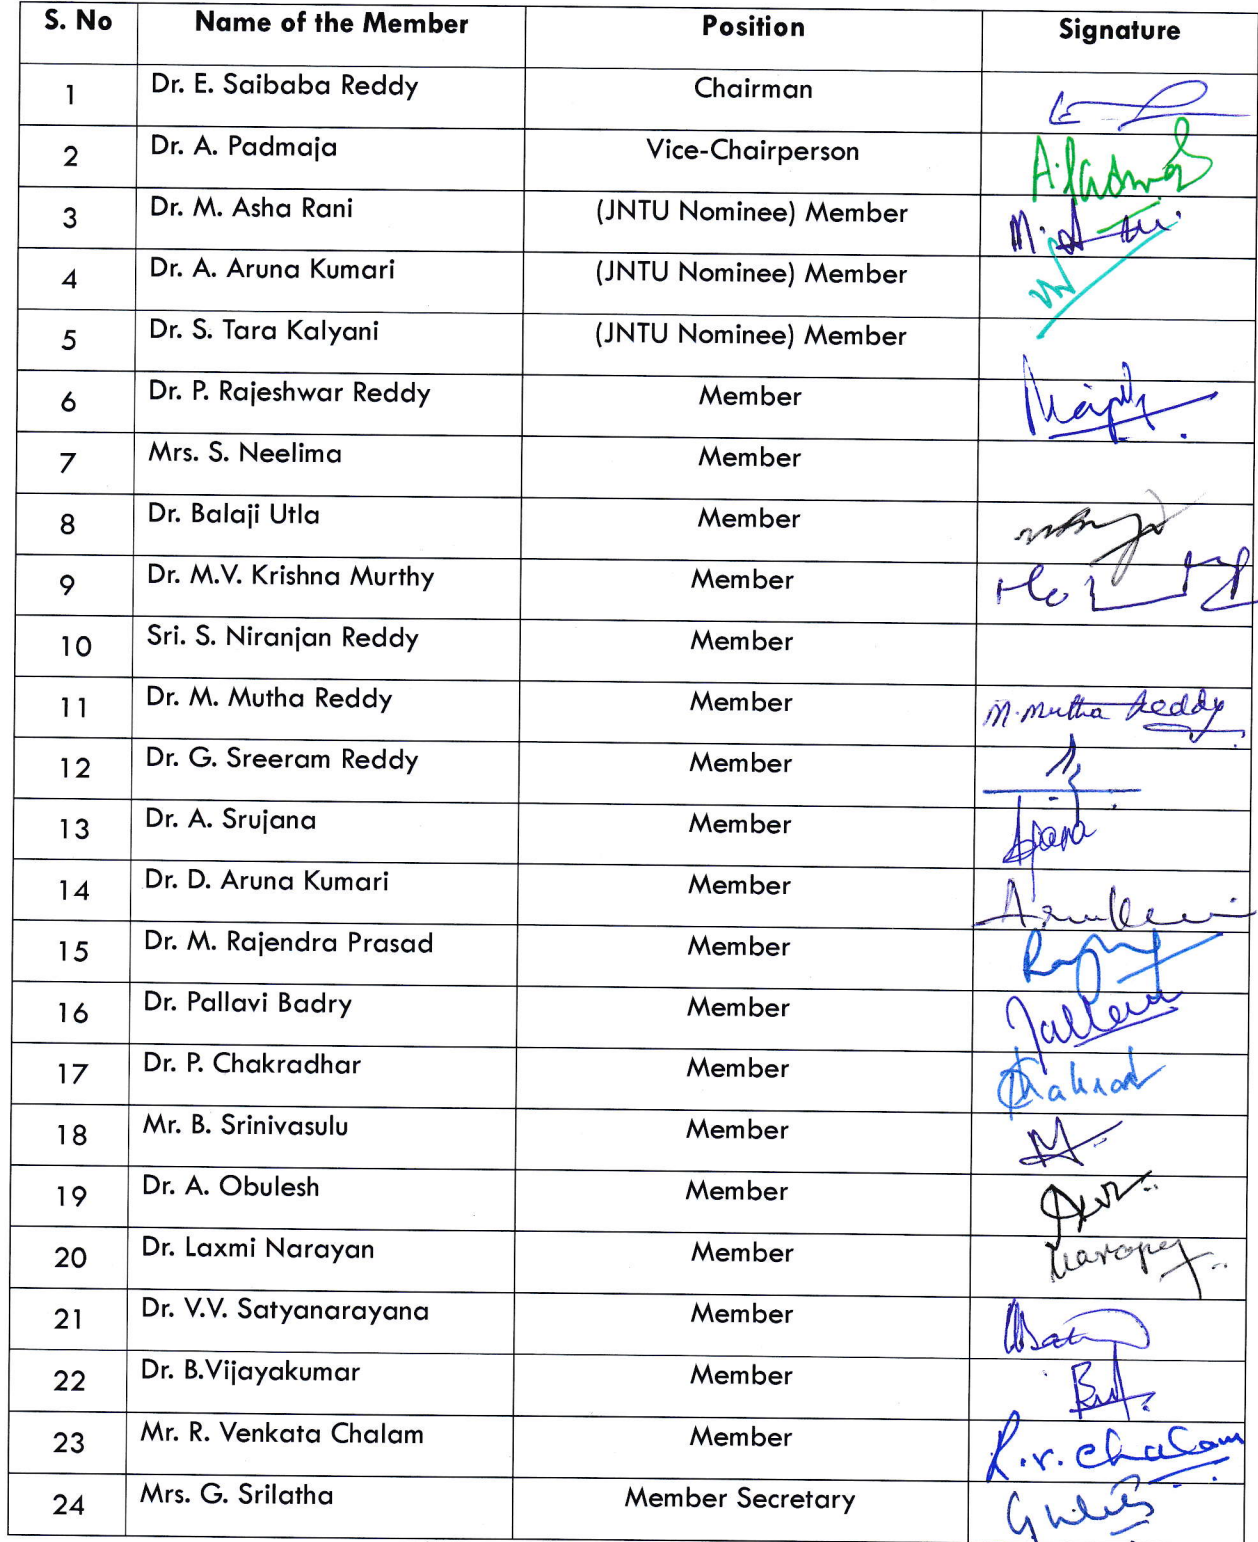 S. No Name of the Member Position Signature
1 Dr. E. Saibaba Reddy Chairman
2 Dr. A. Padmaja Vice-Chairperson
3 Dr. M. Asha Rani (JNTU Nominee) Member
4 Dr. A. Aruna Kumari (JNTU Nominee) Member
5 Dr. S. Tara Kalyani (JNTU Nominee) Member
6 Dr. P. Rajeshwar Reddy Member
7 Mrs. S. Neelima Member
8 Dr. Balaji Utla Member
9 Dr. M.V. Krishna Murthy Member
10 Sri. S. Niranjan Reddy Member
11 Dr. M. Mutha Reddy Member M. Mutha Reddy
12 Dr. G. Sreeram Reddy Member
13 Dr. A. Srujana Member
14 Dr. D. Aruna Kumari Member
15 Dr. M. Rajendra Prasad Member
16 Dr. Pallavi Badry Member
17 Dr. P. Chakradhar Member
18 Mr. B. Srinivasulu Member
19 Dr. A. Obulesh Member
20 Dr. Laxmi Narayan Member
21 Dr. V.V. Satyanarayana Member
22 Dr. B.Vijayakumar Member
23 Mr. R. Venkata Chalam Member R.V. Chalam
24 Mrs. G. Srilatha Member Secretary